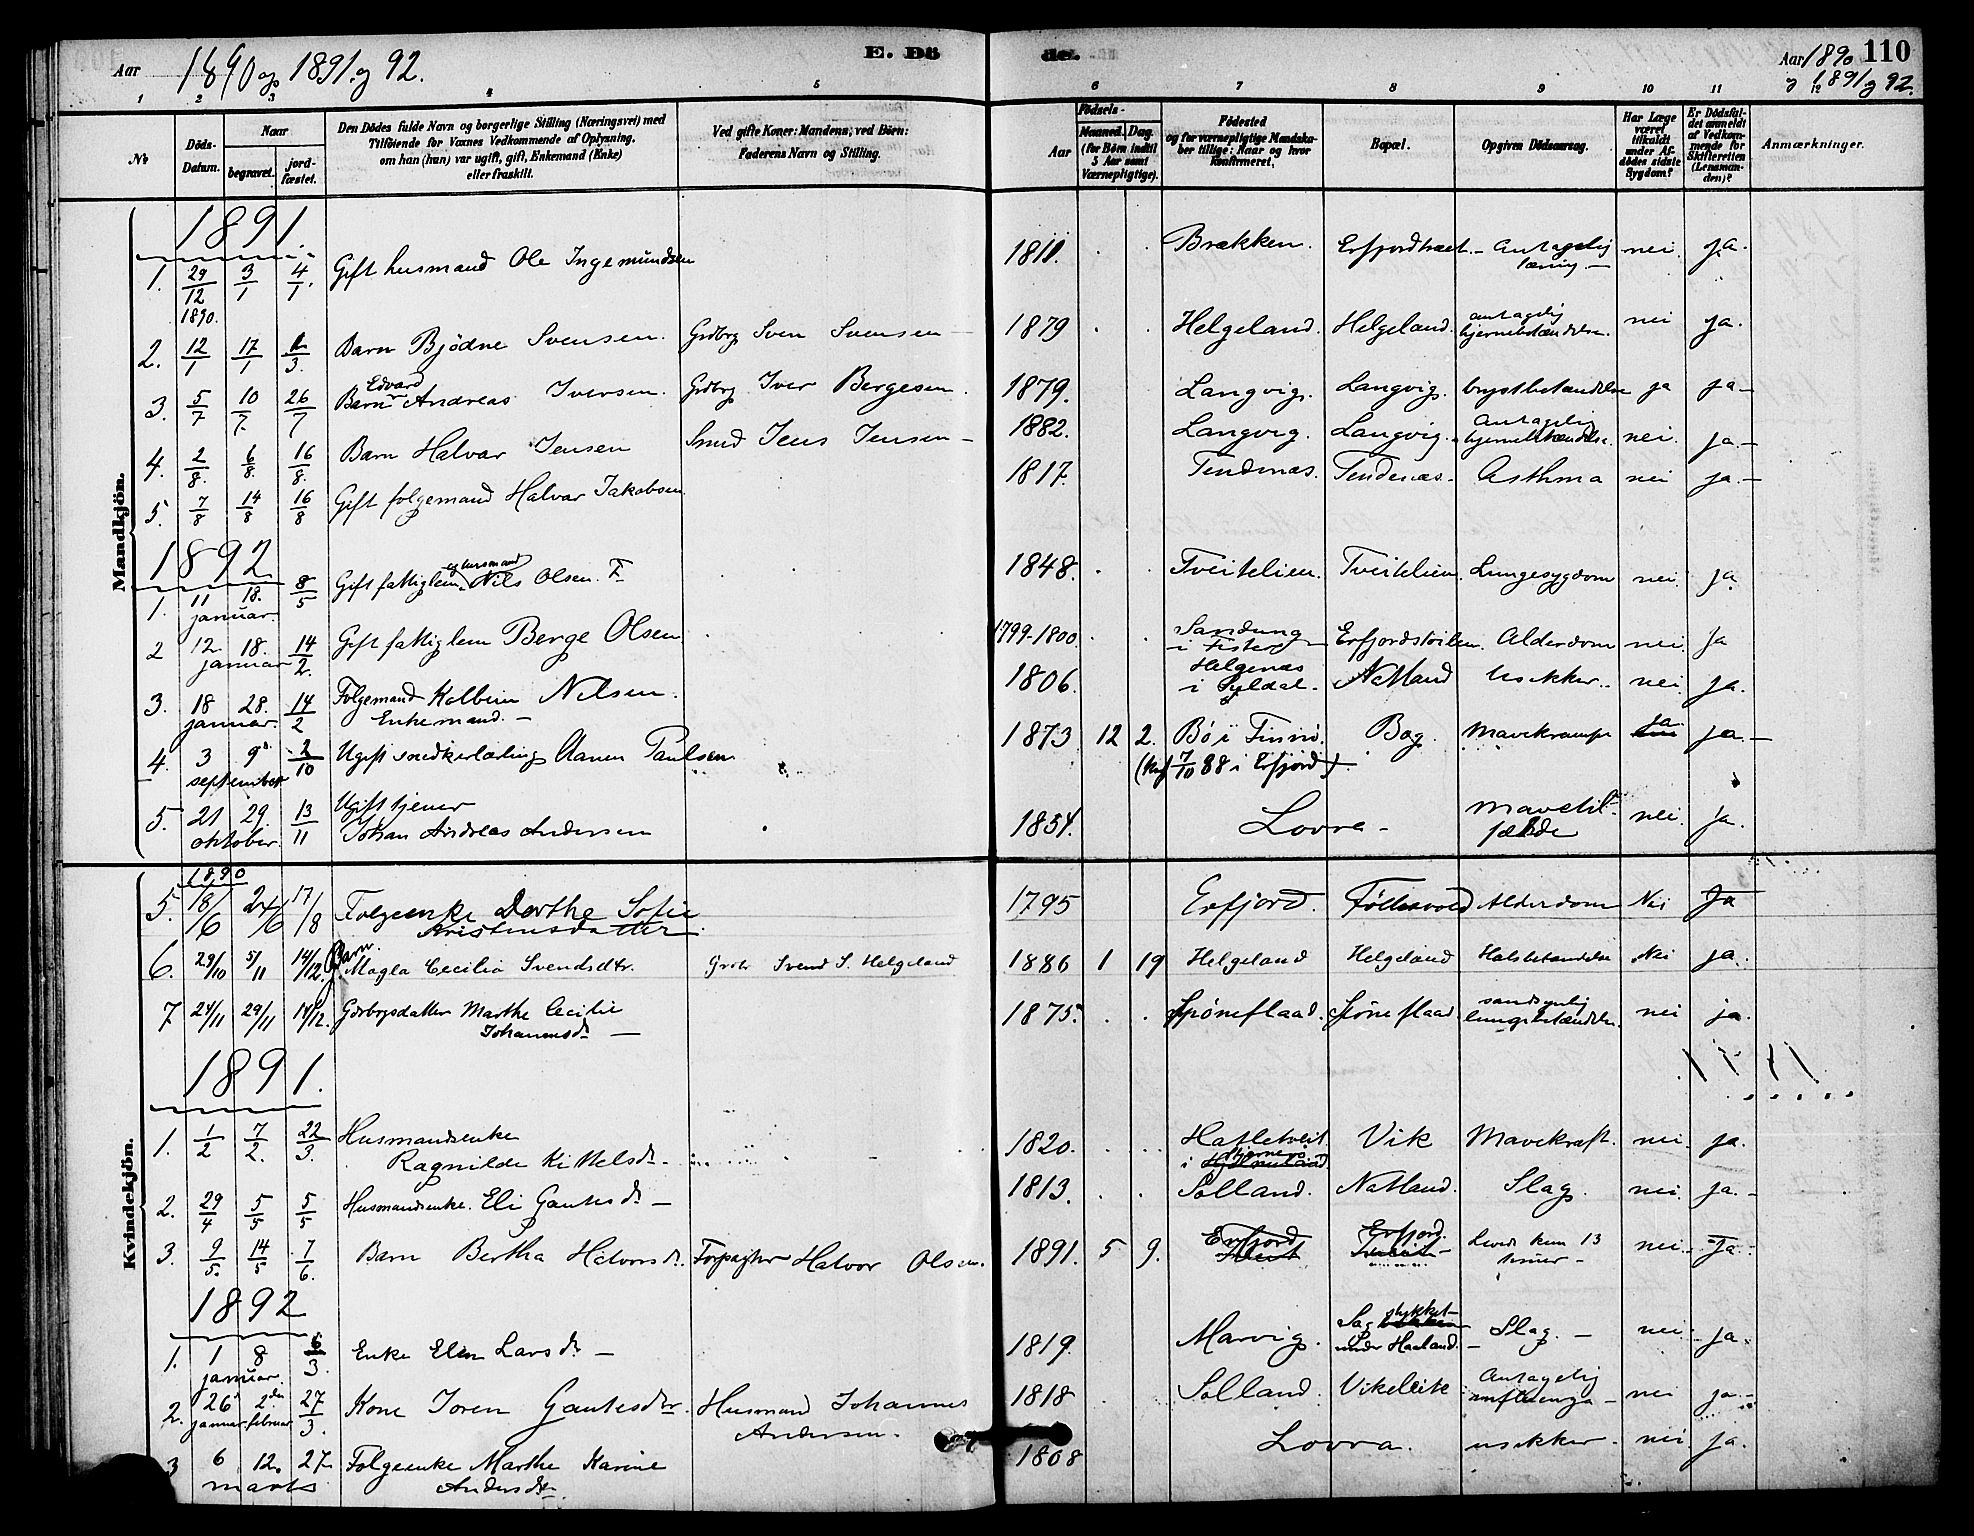 Aar 1890 og 1891 og 92.
E. Dö
de.
Aar 1890 110
og 1891 og 92.
1 2 3 4 5 6 7 8 9 10 11 12
No
Döds-Datum.
Naar
begravet.
jord-fæstet.
Den Dödes fulde Navn og borgerlige Stilling (Næringsvei) med
Tilföiende for Voxnes Vedkommende af Oplysning,
om han (hun) var ugift, gift, Enkemand (Enke)
eller fraskilt.
Ved gifte Koner: Mandens, ved Börn:
Faderens Navn og Stilling.
Födsels-
Aar
Maaned. Dag.
(for Börn indtil
5 Aar samt
Værnepligtige).
Födested
og for værnepligtige Mandska-
ber tillige: Naar og hvor
konfirmeret.
Bopæl.
Opgiven Dödsaarsag.
Har Læge
været
tilkaldt
under Af-
dödes sidste
Sygdom?
Er Dödsfal-
det anmeldt
af Vedkom-
mende for
Skifteretten
(Lensman-
den)?
Anmærkninger.
Mandkjön.
1891.
1. 29/12 1890. 3/1 4/1. Gift husmand Ole Ingemundsen 1811. Brækken. Erfjordtræet antagelig tæring. nei. ja.
2. 12/1 17/1 /3. Barn Bjödne Svensen. Grdbrg Sven Svensen 1879 Helgeland. Helgeland. antagelig hjernebetændelse. nei ja.
3. 5/7 10/7. 26/7 Barn Edvard Andreas Iversen. Grdbrg Iver Bergesen. 1879. Langvig. Langvig. brystbetændelse ja ja
4. 2/8. 6/8. 16/8. Barn Halvar Jensen Smed Jens Jensen 1882. Langvig. Langvig. Antagelig hjernebetændelse. nei. ja.
5. 7/8 14/8 16/8 Gift folgemand Halvar Jakobsen 1817. Tendenæs. Tendenæs. Asthma nei ja.
1892
1. 11 18. januar. 8/5 Gift fattiglem og husmand Nils Olsen. 1848. Tveitelien. Tveitelien. Lungesygdom nei ja
2 12. 18. januar 14/2. Gift fattiglem Berge Olsen 1799-1800. i Fister Alderdom nei. ja
3. 18 28. januar. 14/2 Folgemand Kolbein Nilsen. Enkemand. 1806. Helgenæs i Natland usikker. nei. ja.
4. 3 9 september 2/10 Ugift snedkerlærling Aanen Paulsen 1873 12 2. Bö i Finnö. (Knf 7/10 88 i Erfjord). Bog. Mavekrampe ja ja.
5. 21 29. oktober. 13/11 Ugift tjener Johan Andreas Andersen 1854. Lovra. Mavetilfælde nei. ja.
Kvindekjön.
1890
5. 18/6 24/6 17/8 Folgeenke Dorthe Sofie Kristensdatter. 1795 Erfjord. Alderdom Nei Ja
6. 29/10 5/11 14/12. Barn Magla Cecilia Svendsdtr. Svend S. Helgeland 1886 1 19 Helgeland Helgeland Halsbetændelse Nei ja.
7 24/11 29/11 14/12. Marthe Cecilie Johannesd. 1875. Spöneflaad. sandsynlig lungebetændelse. nei ja.
1891.
1. 1/2 7/2. 22/3. Husmandsenke Ragnilde Kittelsd. 1820. Hatletveit i Vik nei. ja.
2. 29/4 5/5 5/5 Husmandsenke. Eli Gautesd. 1813. Solland. Natland. Slag. nei. ja.
3. 9/5. 14/5 7/6. Barn Bertha Halvorsd. Forpagter Halvor Olsen. 1891. 5 9. Erfjord Erfjord. Levede kun 13 timer nei. Ja.
1892
1. 1 8 januar. 6/3. Enke Elen Larsd. 1819. Marvig. stykket under Haaland. Slag. nei. ja.
2. 26 januar 2den februar 27/3. Kone Joren Gautesdtr. Husmand Johannes Andersen. 1818 Solland. Antagelig influenza nei ja.
3 6 12. marts 27 Folgeenke Marthe Karine Andersd. 1808 Lovra. usikker. nei ja.